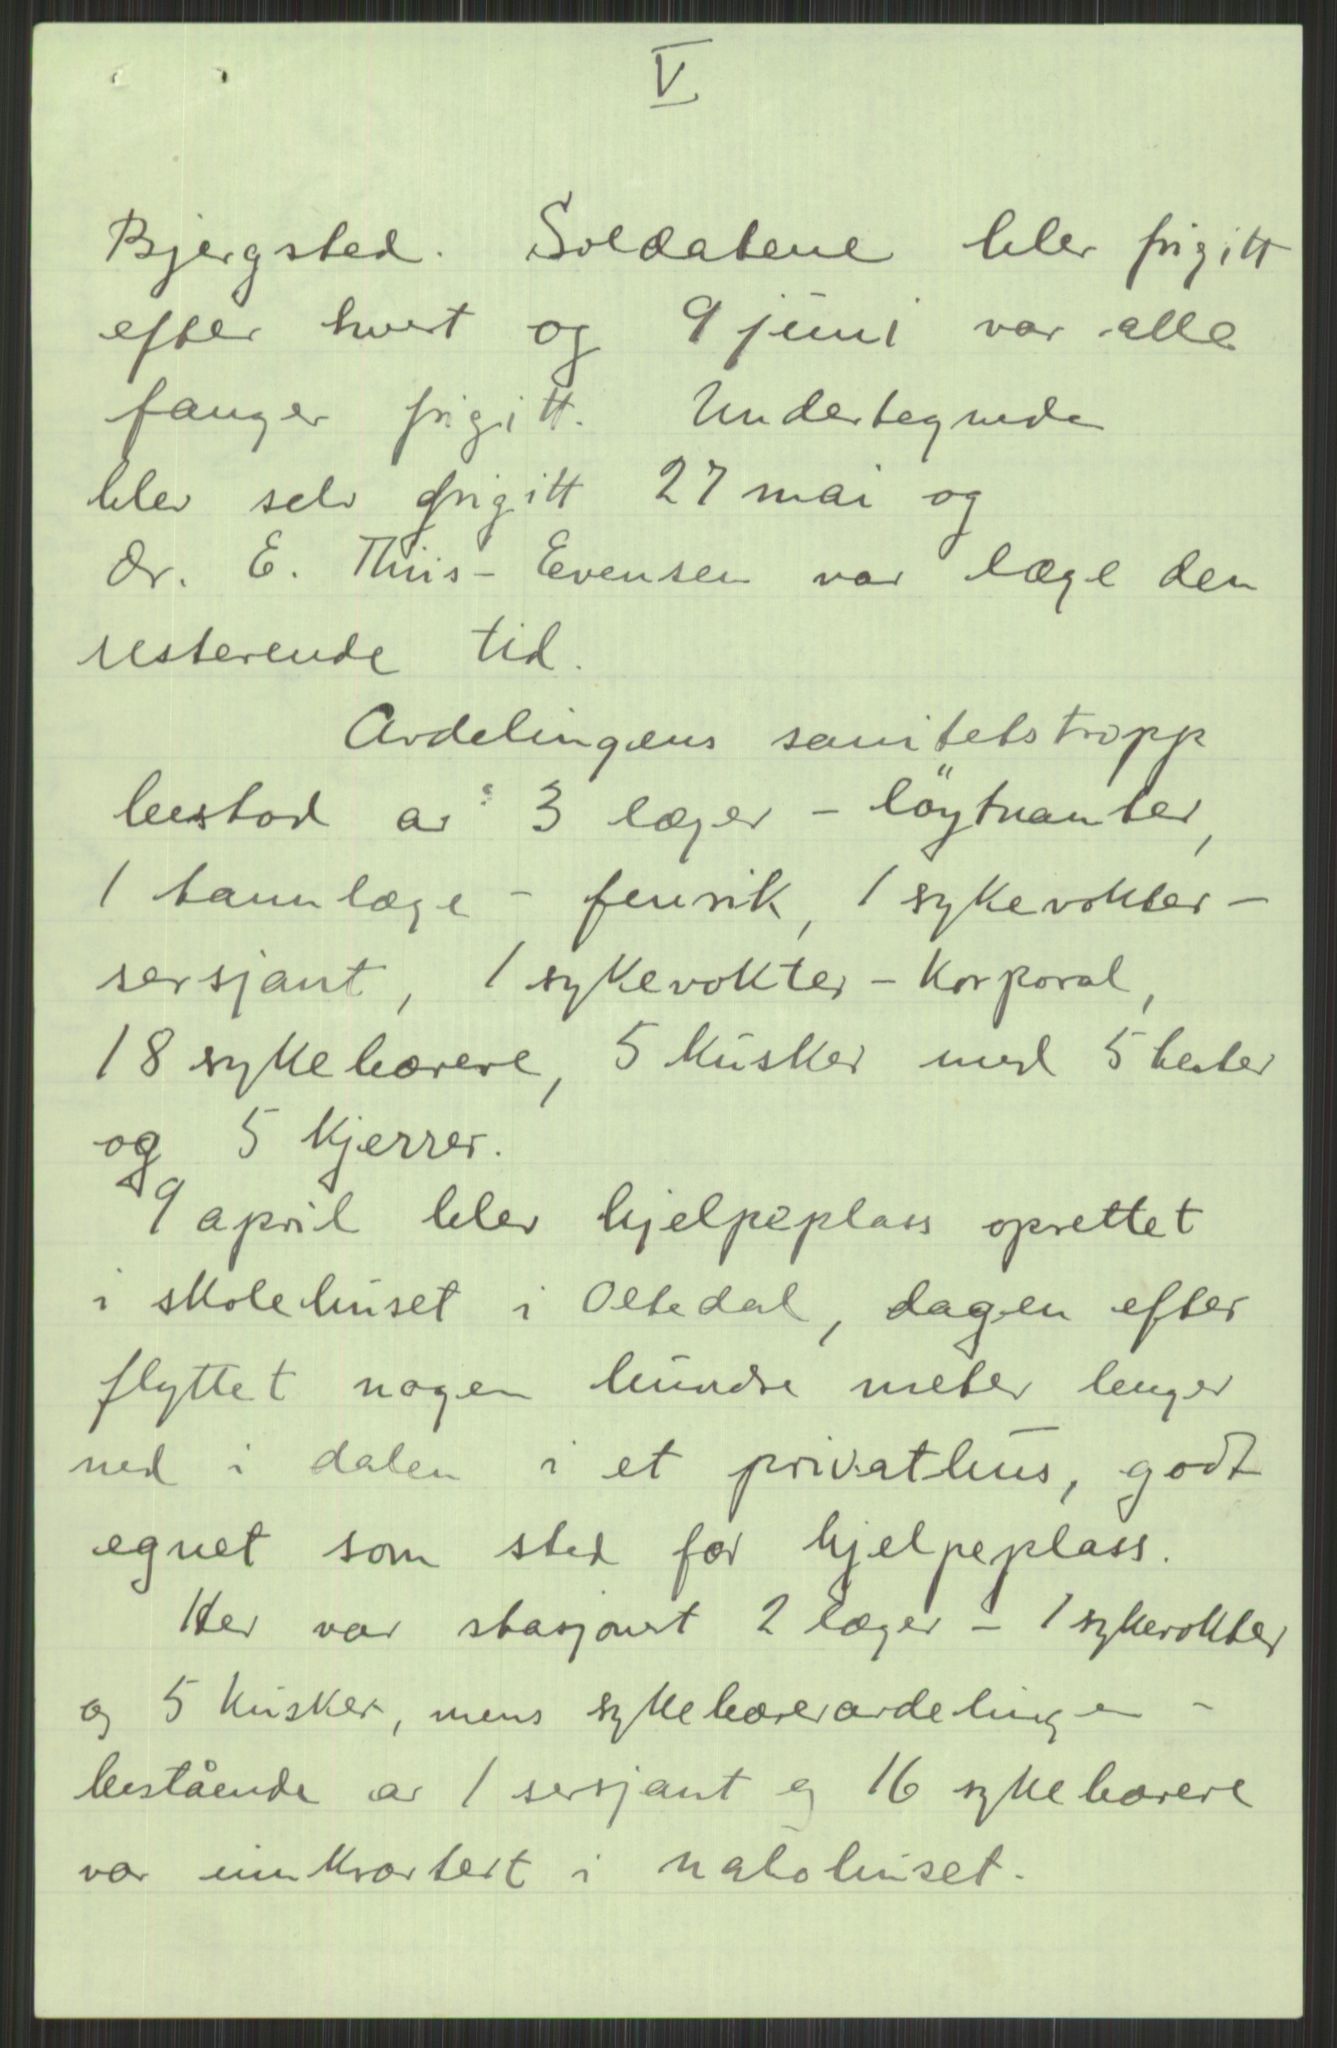 V
Bjergsted. Soldatene blev frigitt
efter hvert og 9 juni var alle
fanger frigitt. Undertegnede
blev selv frigitt 27 mai og
Dr. E. Thiis-Evensen var læge den
resterende tid.
Avdelingens sanitetstropp
bestod av 3 læger - löytnanter,
1 tannlæge - fenrik, 1 sykevokter-
sersjant, 1 sykevokter-korporal,
18 sykebærere, 5 kusker med 5 hester
og 5 kjerrer.
9 april blev hjelpeplass oprettet
i skolehuset i Oltedal, dagen efter
flyttet nogen hundre meter lenger
ned i dalen i et privathus, godt
egnet som sted for hjelpeplass.
Her var stasjonert 2 læger - 1 sykevokter
og 5 kusker, mens sykebæreravdelingen -
bestående av 1 sersjant og 16 sykebærere
var innkvartert i nabohuset.